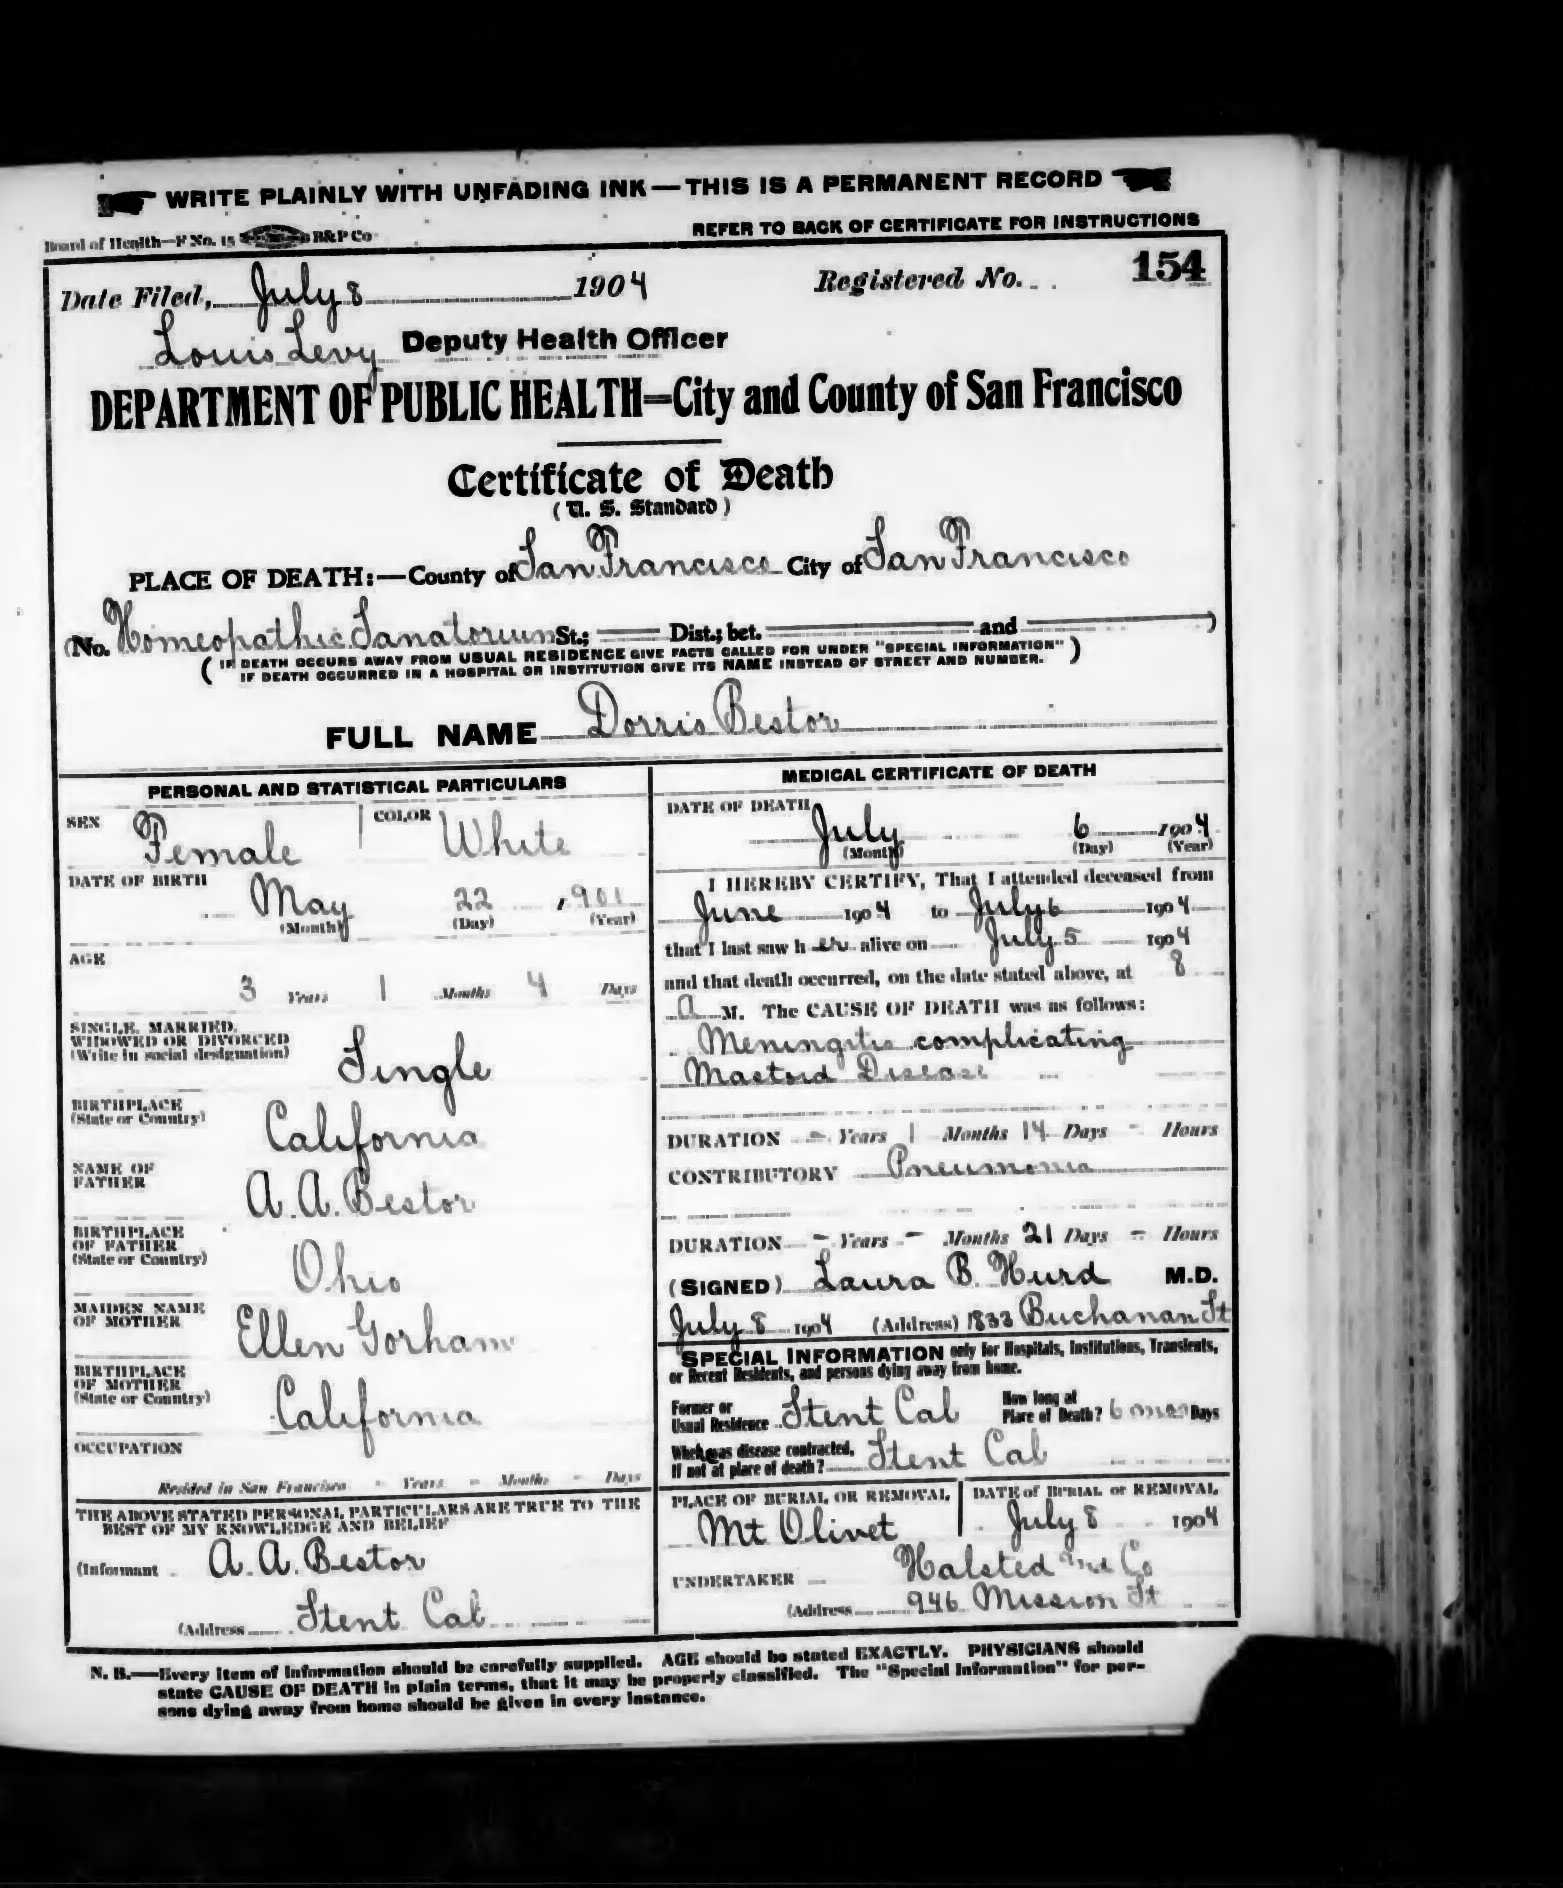 WRITE PLAINLY WITH UNFADING INK—THIS IS A PERMANENT RECORD
Board of Health—F No. 15 B&P Co
REFER TO BACK OF CERTIFICATE FOR INSTRUCTIONS
Date Filed, July 8 1904 Registered No. 154
Louis Levy Deputy Health Officer
DEPARTMENT OF PUBLIC HEALTH—City and County of San Francisco
Certificate of Death
(U. S. Standard)
PLACE OF DEATH:—County of San Francisco City of San Francisco
(No. Homeopathic Sanatorium St.; Dist.; bet. and )
( IF DEATH OCCURS AWAY FROM USUAL RESIDENCE GIVE FACTS CALLED FOR UNDER "SPECIAL INFORMATION" )
IF DEATH OCCURRED IN A HOSPITAL OR INSTITUTION GIVE ITS NAME INSTEAD OF STREET AND NUMBER.
FULL NAME Dorris Bestor
PERSONAL AND STATISTICAL PARTICULARS
SEX Female COLOR White
DATE OF BIRTH May 22, 1901
(Month) (Day) (Year)
AGE
3 Years 1 Months 4 Days
SINGLE, MARRIED,
WIDOWED OR DIVORCED
(Write in social designation) Single
BIRTHPLACE
(State or Country) California
NAME OF
FATHER A. A. Bestor
BIRTHPLACE
OF FATHER
(State or Country) Ohio
MAIDEN NAME
OF MOTHER Ellen Gorham
BIRTHPLACE
OF MOTHER
(State or Country) California
OCCUPATION
Resided in San Francisco - Years - Months - Days
THE ABOVE STATED PERSONAL PARTICULARS ARE TRUE TO THE
BEST OF MY KNOWLEDGE AND BELIEF
(Informant A. A. Bestor
(Address Stent Cal
MEDICAL CERTIFICATE OF DEATH
DATE OF DEATH
July 6 1904
(Month) (Day) (Year)
I HEREBY CERTIFY, That I attended deceased from
June 1904 to July 6 1904
that I last saw her alive on July 5 1904
and that death occurred, on the date stated above, at 8
a M. The CAUSE OF DEATH was as follows:
Meningitis complicating
Mastoid Disease
DURATION - Years 1 Months 14 Days - Hours
CONTRIBUTORY Pneumonia
DURATION - Years - Months 21 Days - Hours
(SIGNED) Laura B. Hurd M.D.
July 8 1904 (Address) 1833 Buchanan St
SPECIAL INFORMATION only for Hospitals, Institutions, Transients,
or Recent Residents, and persons dying away from home.
Former or
Usual Residence Stent Cal
How long at
Place of Death? 6 Days
When was disease contracted,
If not at place of death? Stent Cal
PLACE OF BURIAL OR REMOVAL DATE of BURIAL or REMOVAL
Mt Olivet July 8 1904
UNDERTAKER Halsted Co
(Address 946 Mission St
N. B.—Every item of information should be carefully supplied. AGE should be stated EXACTLY. PHYSICIANS should
state CAUSE OF DEATH in plain terms, that it may be properly classified. The "Special Information" for per-
sons dying away from home should be given in every instance.